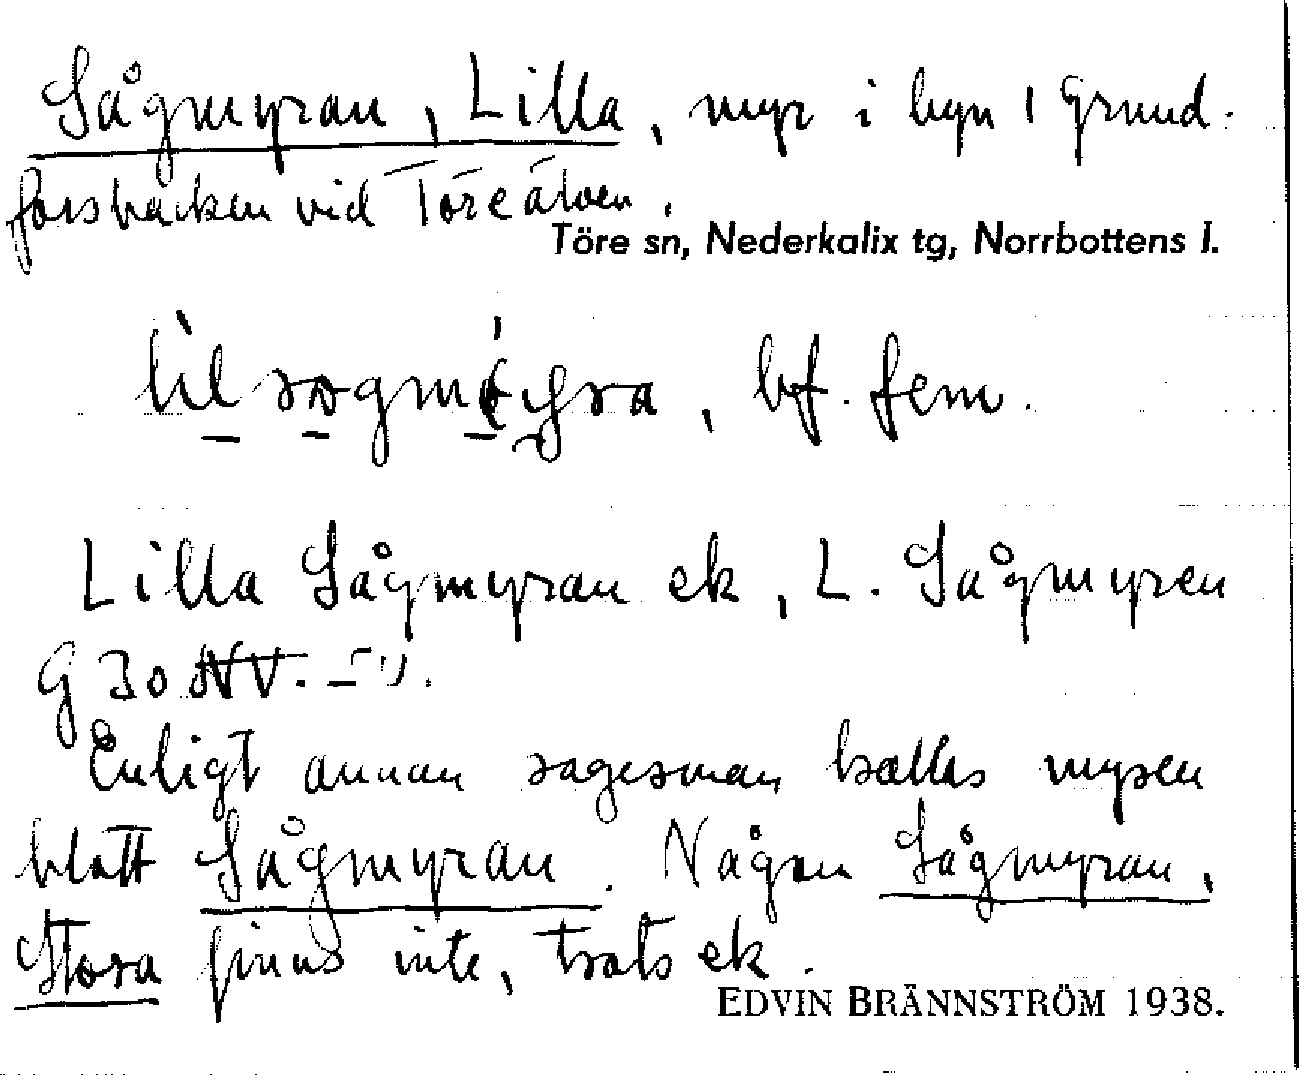 Sågmyran, Lilla, myr i byn 1 Grund-
forsbäcken vid Töreälven.
Töre sn, Nederkalix tg, Norrbottens l.
bf. fem.
Lilla Sågmyran ek, L. Sågmyren
G 30 NV.
Enligt annan sagesman kallas myren
blott Sågmyran. Någon Sågmyran,
Stora finns inte, trots ek.
EDVIN BRÄNNSTRÖM 1938.